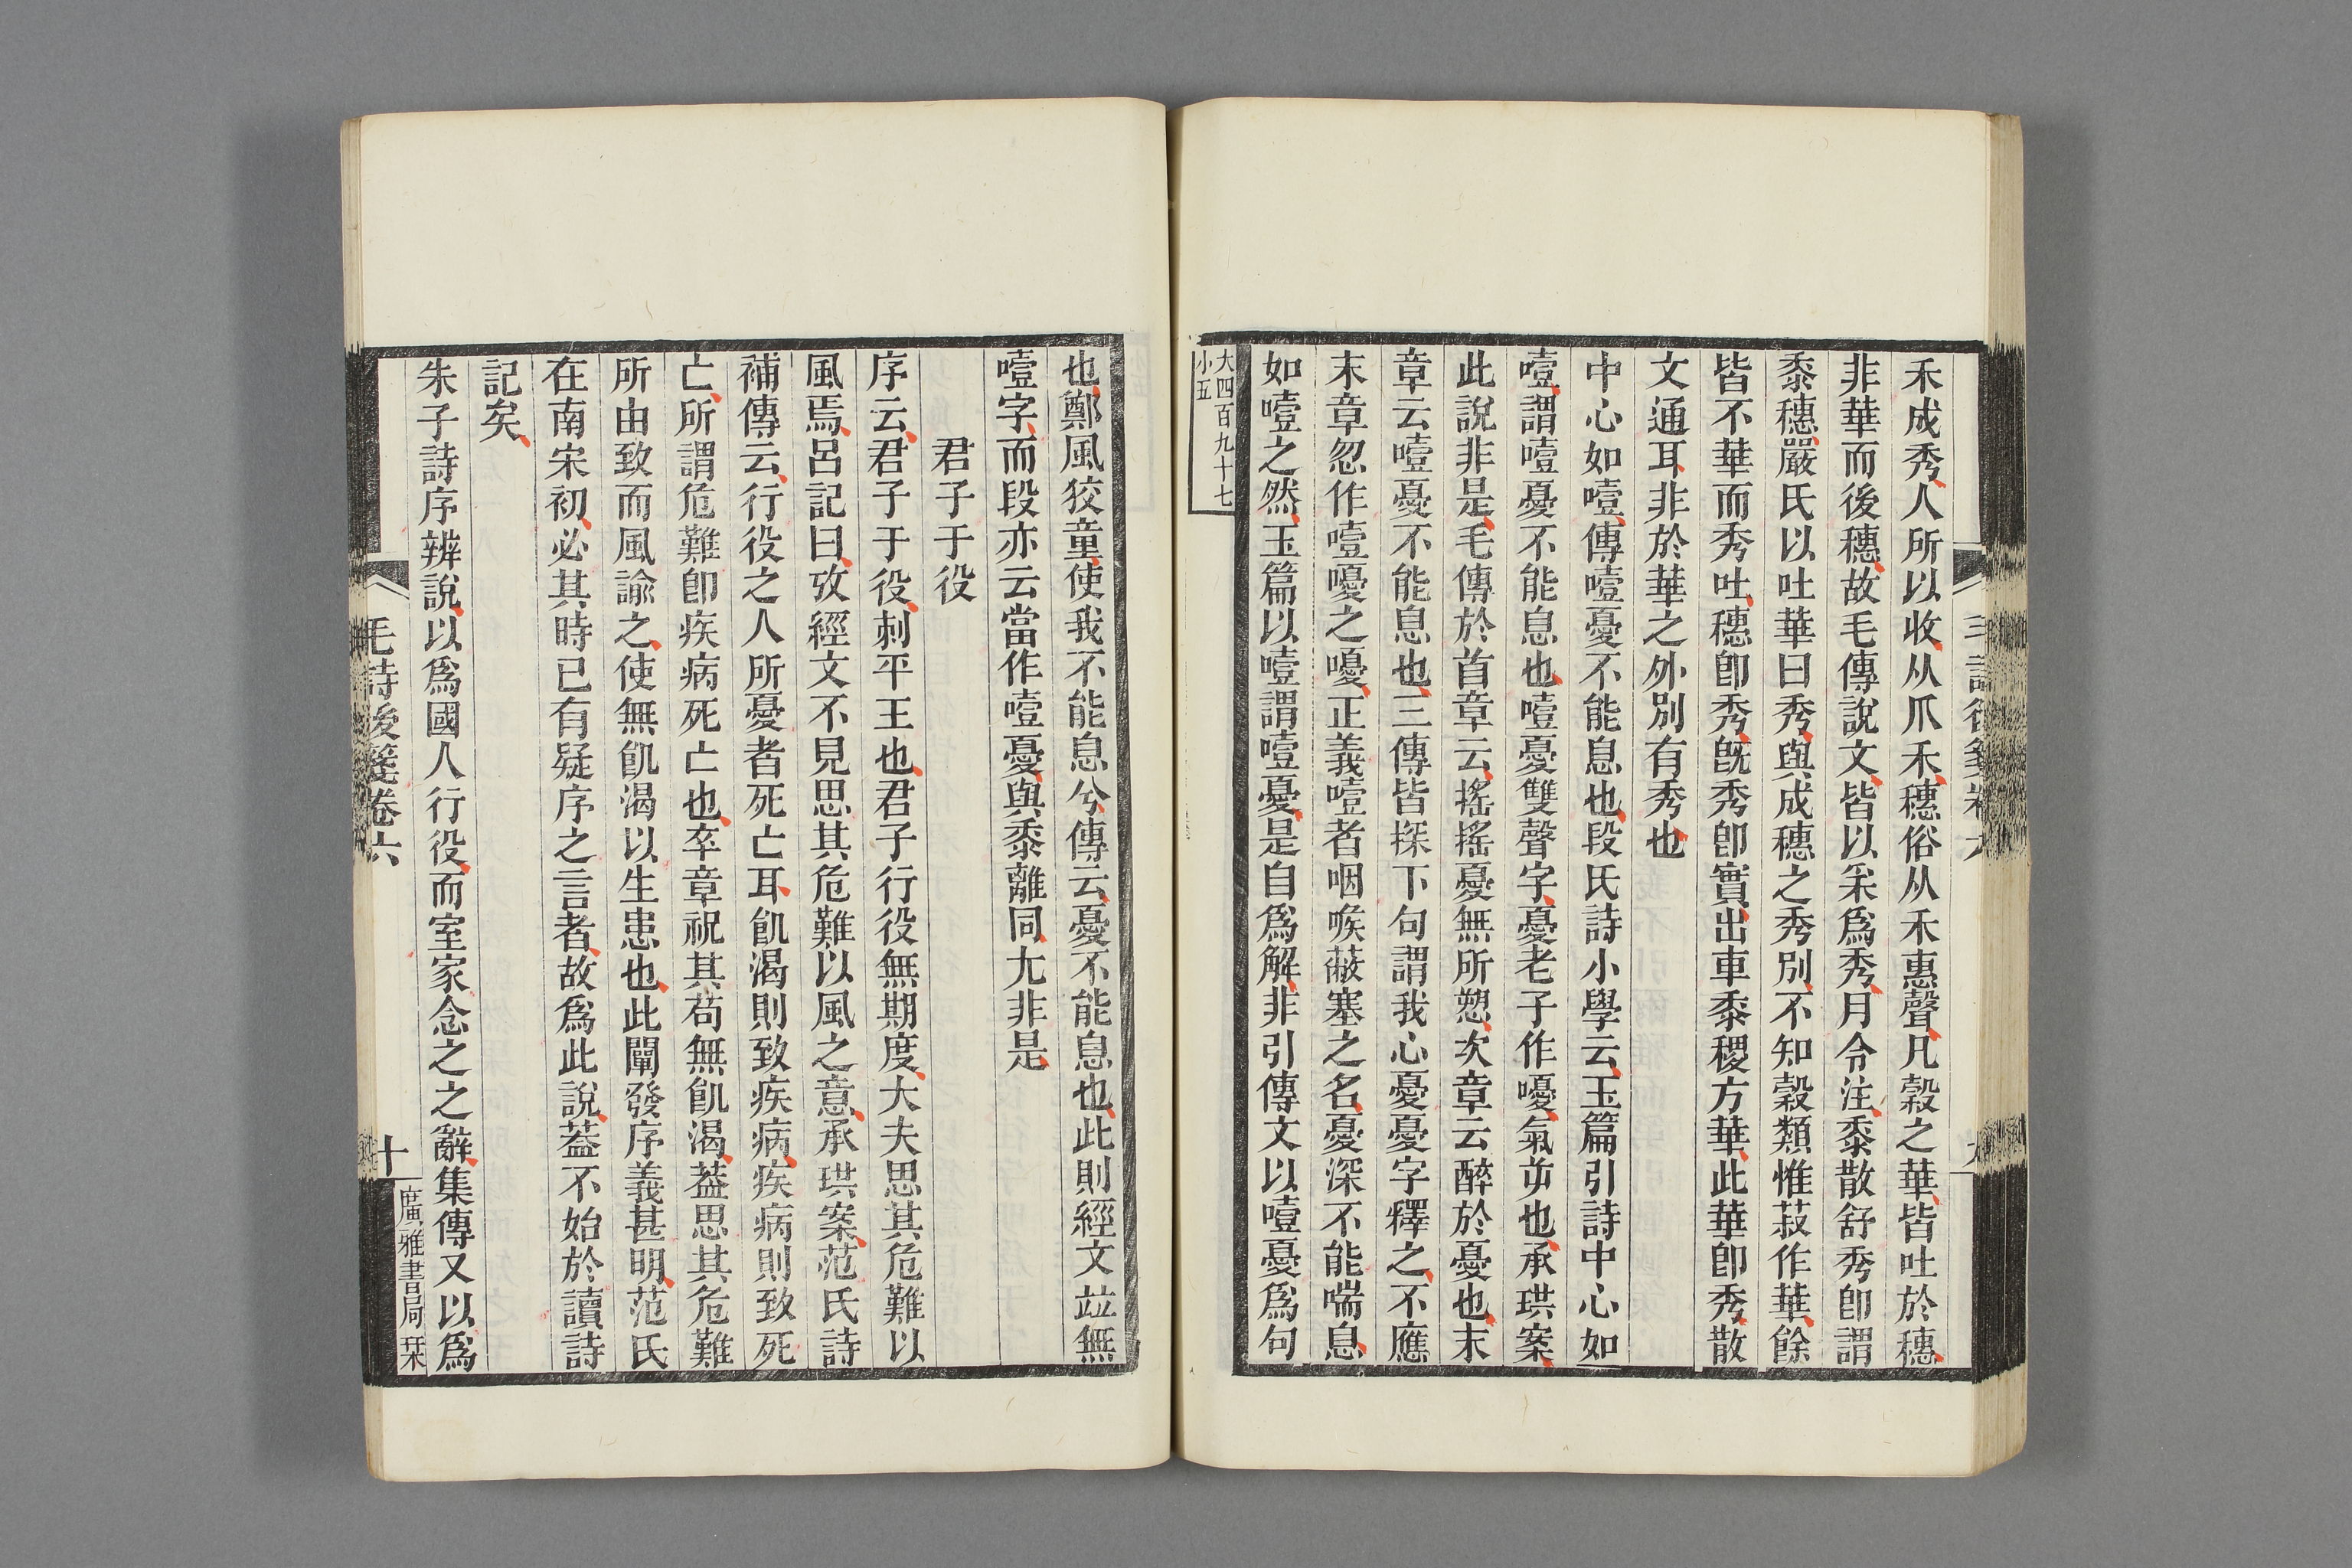 禾成秀人所以收从爪禾穗俗从禾惠聲凡穀之華皆吐於穗
非華而後穗故毛傳說文皆以采爲秀月令注黍散舒秀卽謂
黍穗嚴氏以吐華曰秀與成穗之秀別不知穀類惟菽作華餘
皆不華而秀吐穗卽秀旣秀卽實出車黍稷方華此華卽秀散
文通耳非於華之外別有秀也
中心如噎傳噎憂不能息也段氏詩小學云玉篇引詩中心如
噎謂噎憂不能息也噎憂雙聲字憂老子作嚘氣屰也承珙案
此說非是毛傳於首章云搖搖憂無所愬次章云醉於憂也末
章云噎憂不能息也三傳皆探下句謂我心憂憂字釋之不應
末章忽作噎嚘之嚘正義噎者咽喉蔽塞之名憂深不能喘息
如噎之然玉篇以噎謂噎憂是自爲解非引傳文以噎憂爲句
大四百九十七
小五
也鄭風狡童使我不能息兮傳云憂不能息也此則經文竝無
噎字而段亦云當作噎憂與黍離同尢非是
君子于役
序云君子于役刺平王也君子行役無期度大夫思其危難以
風焉呂記曰攷經文不見思其危難以風之意承珙案范氏詩
補傳云行役之人所憂者死亡耳飢渴則致疾病疾病則致死
亡所謂危難卽疾病死亡也卒章祝其苟無飢渴葢思其危難
所由致而風諭之使無飢渴以生患也此闡發序義甚明范氏
在南宋初必其時已有疑序之言者故爲此說葢不始於讀詩
記矣
朱子詩序辨說以爲國人行役而室家念之之辭集傳又以爲
毛詩後箋卷六
十
廣雅書局栞